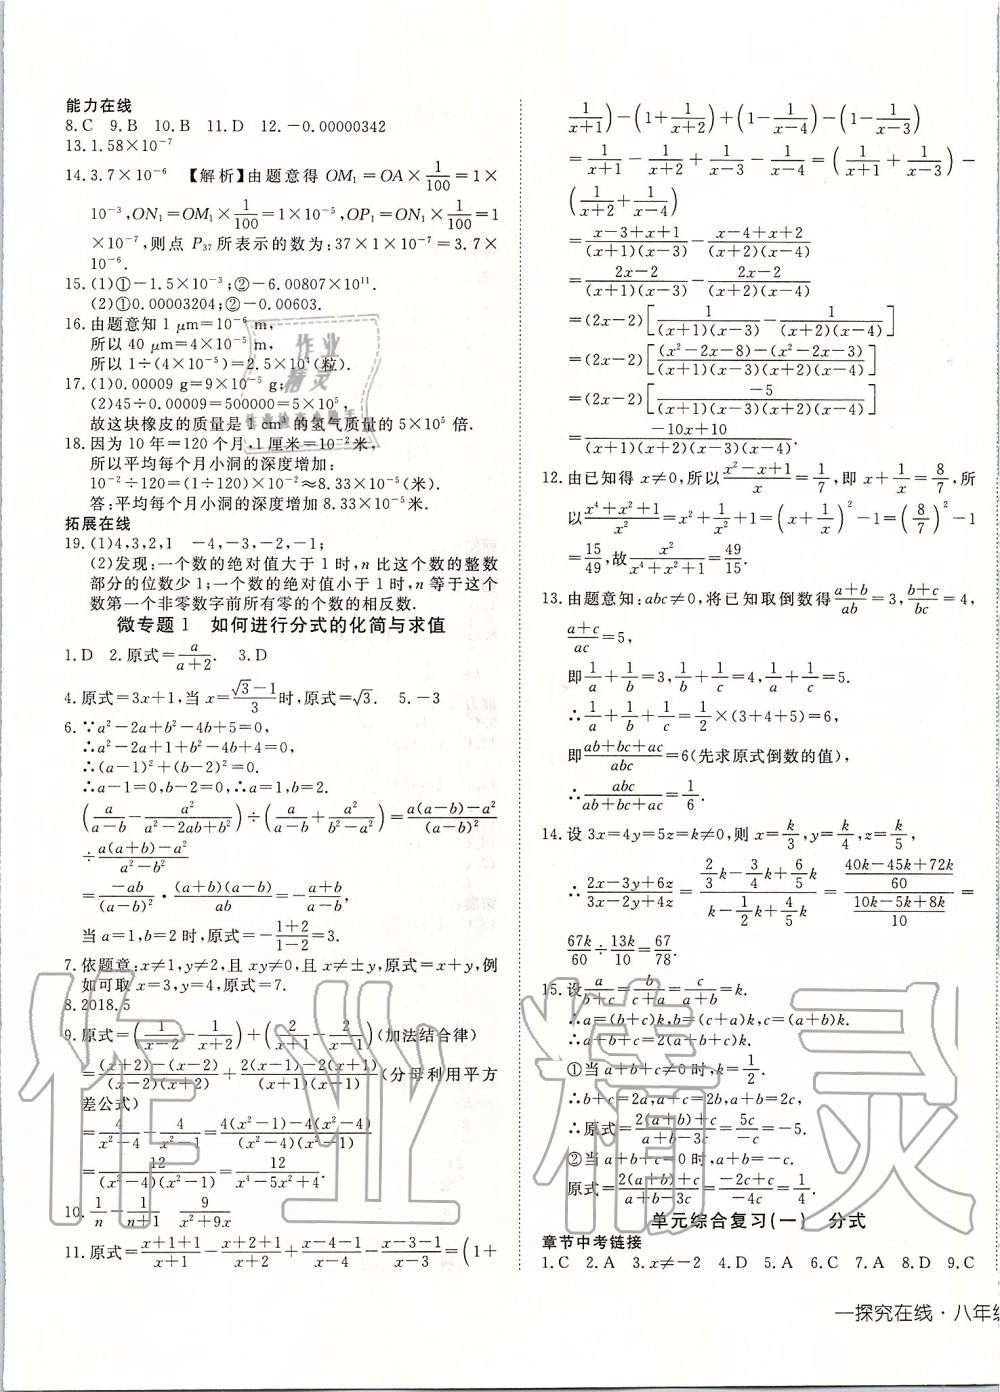 能力在线
8.C 9.B 10.B 11.D 12.－0.00000342
13.1.58×10⁻⁷
14.3.7×10⁻⁶ 【解析】由题意得 OM₁＝OA×1/100＝1×
10⁻³,ON₁＝OM₁×1/100＝1×10⁻⁵,OP₁＝ON₁×1/100＝1
×10⁻⁷,则点 P₃₇所表示的数为:37×1×10⁻⁷＝3.7×
10⁻⁶.
15.(1)①－1.5×10⁻³;②－6.00807×10¹¹.
(2)①0.00003204;②－0.00603.
16.由题意知 1 μm＝10⁻⁶ m,
所以 40 μm＝4×10⁻⁵ m,
所以 1÷(4×10⁻⁵)＝2.5×10⁴(粒).
17.(1)0.00009 g＝9×10⁻⁵ g;
(2)45÷0.00009＝500000＝5×10⁵,
故这块橡皮的质量是 1 cm³的氢气质量的 5×10⁵ 倍.
18.因为 10 年＝120 个月,1 厘米＝10⁻²米,
所以平均每个月小洞的深度增加:
10⁻²÷120＝(1÷120)×10⁻²≈8.33×10⁻⁵(米).
答:平均每个月小洞的深度增加 8.33×10⁻⁵米.
拓展在线
19.(1)4,3,2,1 －4,－3,－2,－1;
(2)发现:一个数的绝对值大于 1 时,n 比这个数的整数
部分的位数少 1;一个数的绝对值小于 1 时,n 等于这个
数第一个非零数字前所有零的个数的相反数.
微专题 1 如何进行分式的化简与求值
1.D 2.原式＝a/(a＋2). 3.D
4.原式＝3x＋1,当 x＝(√3－1)/3时,原式＝√3. 5.－3
6.∵a²－2a＋b²－4b＋5＝0,
∴a²－2a＋1＋b²－4b＋4＝0,
∴(a－1)²＋(b－2)²＝0.
∴a－1＝0,b－2＝0,∴a＝1,b＝2.
(a/(a－b)－a²/(a²－2ab＋b²))÷(a/(a－b)＋a²/(b²－a²))＝(a(a－b)－a²)/(a－b)²
÷(a(a＋b)－a²)/(a²－b²)
＝－ab/(a－b)²·(a＋b)(a－b)/ab＝－(a＋b)/(a－b),
当 a＝1,b＝2 时,原式＝－(1＋2)/(1－2)＝3.
7.依题意:x≠1,y≠2,且 xy≠0,且 x≠±y,原式＝x＋y,例
如可取 x＝3,y＝4,原式＝7.
8.2018.5
9.原式＝(1/(x－2)－1/(x＋2))＋(2/(x＋1)－2/(x－1))(加法结合律)
＝((x＋2)－(x－2))/((x－2)(x＋2))＋(2(x－1)－2(x＋1))/((x＋1)(x－1))(分母利用平方
差公式)
＝4/(x²－4)－4/(x²－1)＝(4(x²－1)－4(x²－4))/((x²－4)(x²－1))
＝12/((x²－4)(x²－1))＝12/(x⁴－5x²＋4).
10.1/n－1/(n＋1) 9/(x²＋9x)
11.原式＝(x＋1＋1)/(x＋1)－(x＋2＋1)/(x＋2)＋(x－4－1)/(x－4)－(x－3－1)/(x－3)＝(1＋
1/(x＋1))－(1＋1/(x＋2))＋(1－1/(x－4))－(1－1/(x－3))
＝1/(x＋1)－1/(x＋2)＋1/(x－3)－1/(x－4)＝(1/(x＋1)＋1/(x－3))－
(1/(x＋2)＋1/(x－4))
＝(x－3＋x＋1)/((x＋1)(x－3))－(x－4＋x＋2)/((x＋2)(x－4))
＝(2x－2)/((x＋1)(x－3))－(2x－2)/((x＋2)(x－4))
＝(2x－2)[1/((x＋1)(x－3))－1/((x＋2)(x－4))]
＝(2x－2)[((x²－2x－8)－(x²－2x－3))/((x＋1)(x－3)(x＋2)(x－4))]
＝(2x－2)[－5/((x＋1)(x－3)(x＋2)(x－4))]
＝(－10x＋10)/((x＋1)(x＋2)(x－3)(x－4)).
12.由已知得 x≠0,所以(x²－x＋1)/x＝1/7,即 x＋1/x＝8/7,所
以(x⁴＋x²＋1)/x²＝x²＋1/x²＋1＝(x＋1/x)²－1＝(8/7)²－1
＝15/49,故x²/(x⁴＋x²＋1)＝49/15.
13.由题意知:abc≠0,将已知取倒数得(a＋b)/ab＝3,(b＋c)/bc＝4,
(a＋c)/ac＝5,
即1/a＋1/b＝3,1/b＋1/c＝4,1/a＋1/c＝5.
∴1/a＋1/b＋1/c＝1/2×(3＋4＋5)＝6,
即(ab＋bc＋ac)/abc＝6(先求原式倒数的值),
∴abc/(ab＋bc＋ac)＝1/6.
14.设 3x＝4y＝5z＝k≠0,则 x＝k/3,y＝k/4,z＝k/5,
∴(2x－3y＋6z)/(3x－2y＋4z)＝(2/3k－3/4k＋6/5k)/(k－1/2k＋4/5k)＝((40k－45k＋72k)/60)/((10k－5k＋8k)/10)＝
67k/60÷13k/10＝67/78.
15.设a/(b＋c)＝b/(c＋a)＝c/(a＋b)＝k.
∴a＝(b＋c)k,b＝(a＋c)k,c＝(a＋b)k.
∴a＋b＋c＝2(a＋b＋c)k.
①当 a＋b＋c≠0 时,k＝1/2.
∴b＋c＝2a,a＋c＝2b,a＋b＝2c,
∴原式＝(2(a＋b)＋c)/(a＋b－3c)＝5c/－c＝－5.
②当 a＋b＋c＝0 时,a＋b＝－c.
原式＝(2(a＋b)＋c)/(a＋b－3c)＝－c/－4c＝1/4.
单元综合复习(一) 分式
章节中考链接
1.C 2.A 3.x≠－2 4.D 5.A 6.C 7.A 8.D 9.C
一探究在线·八年级
作业精灵
作业精灵